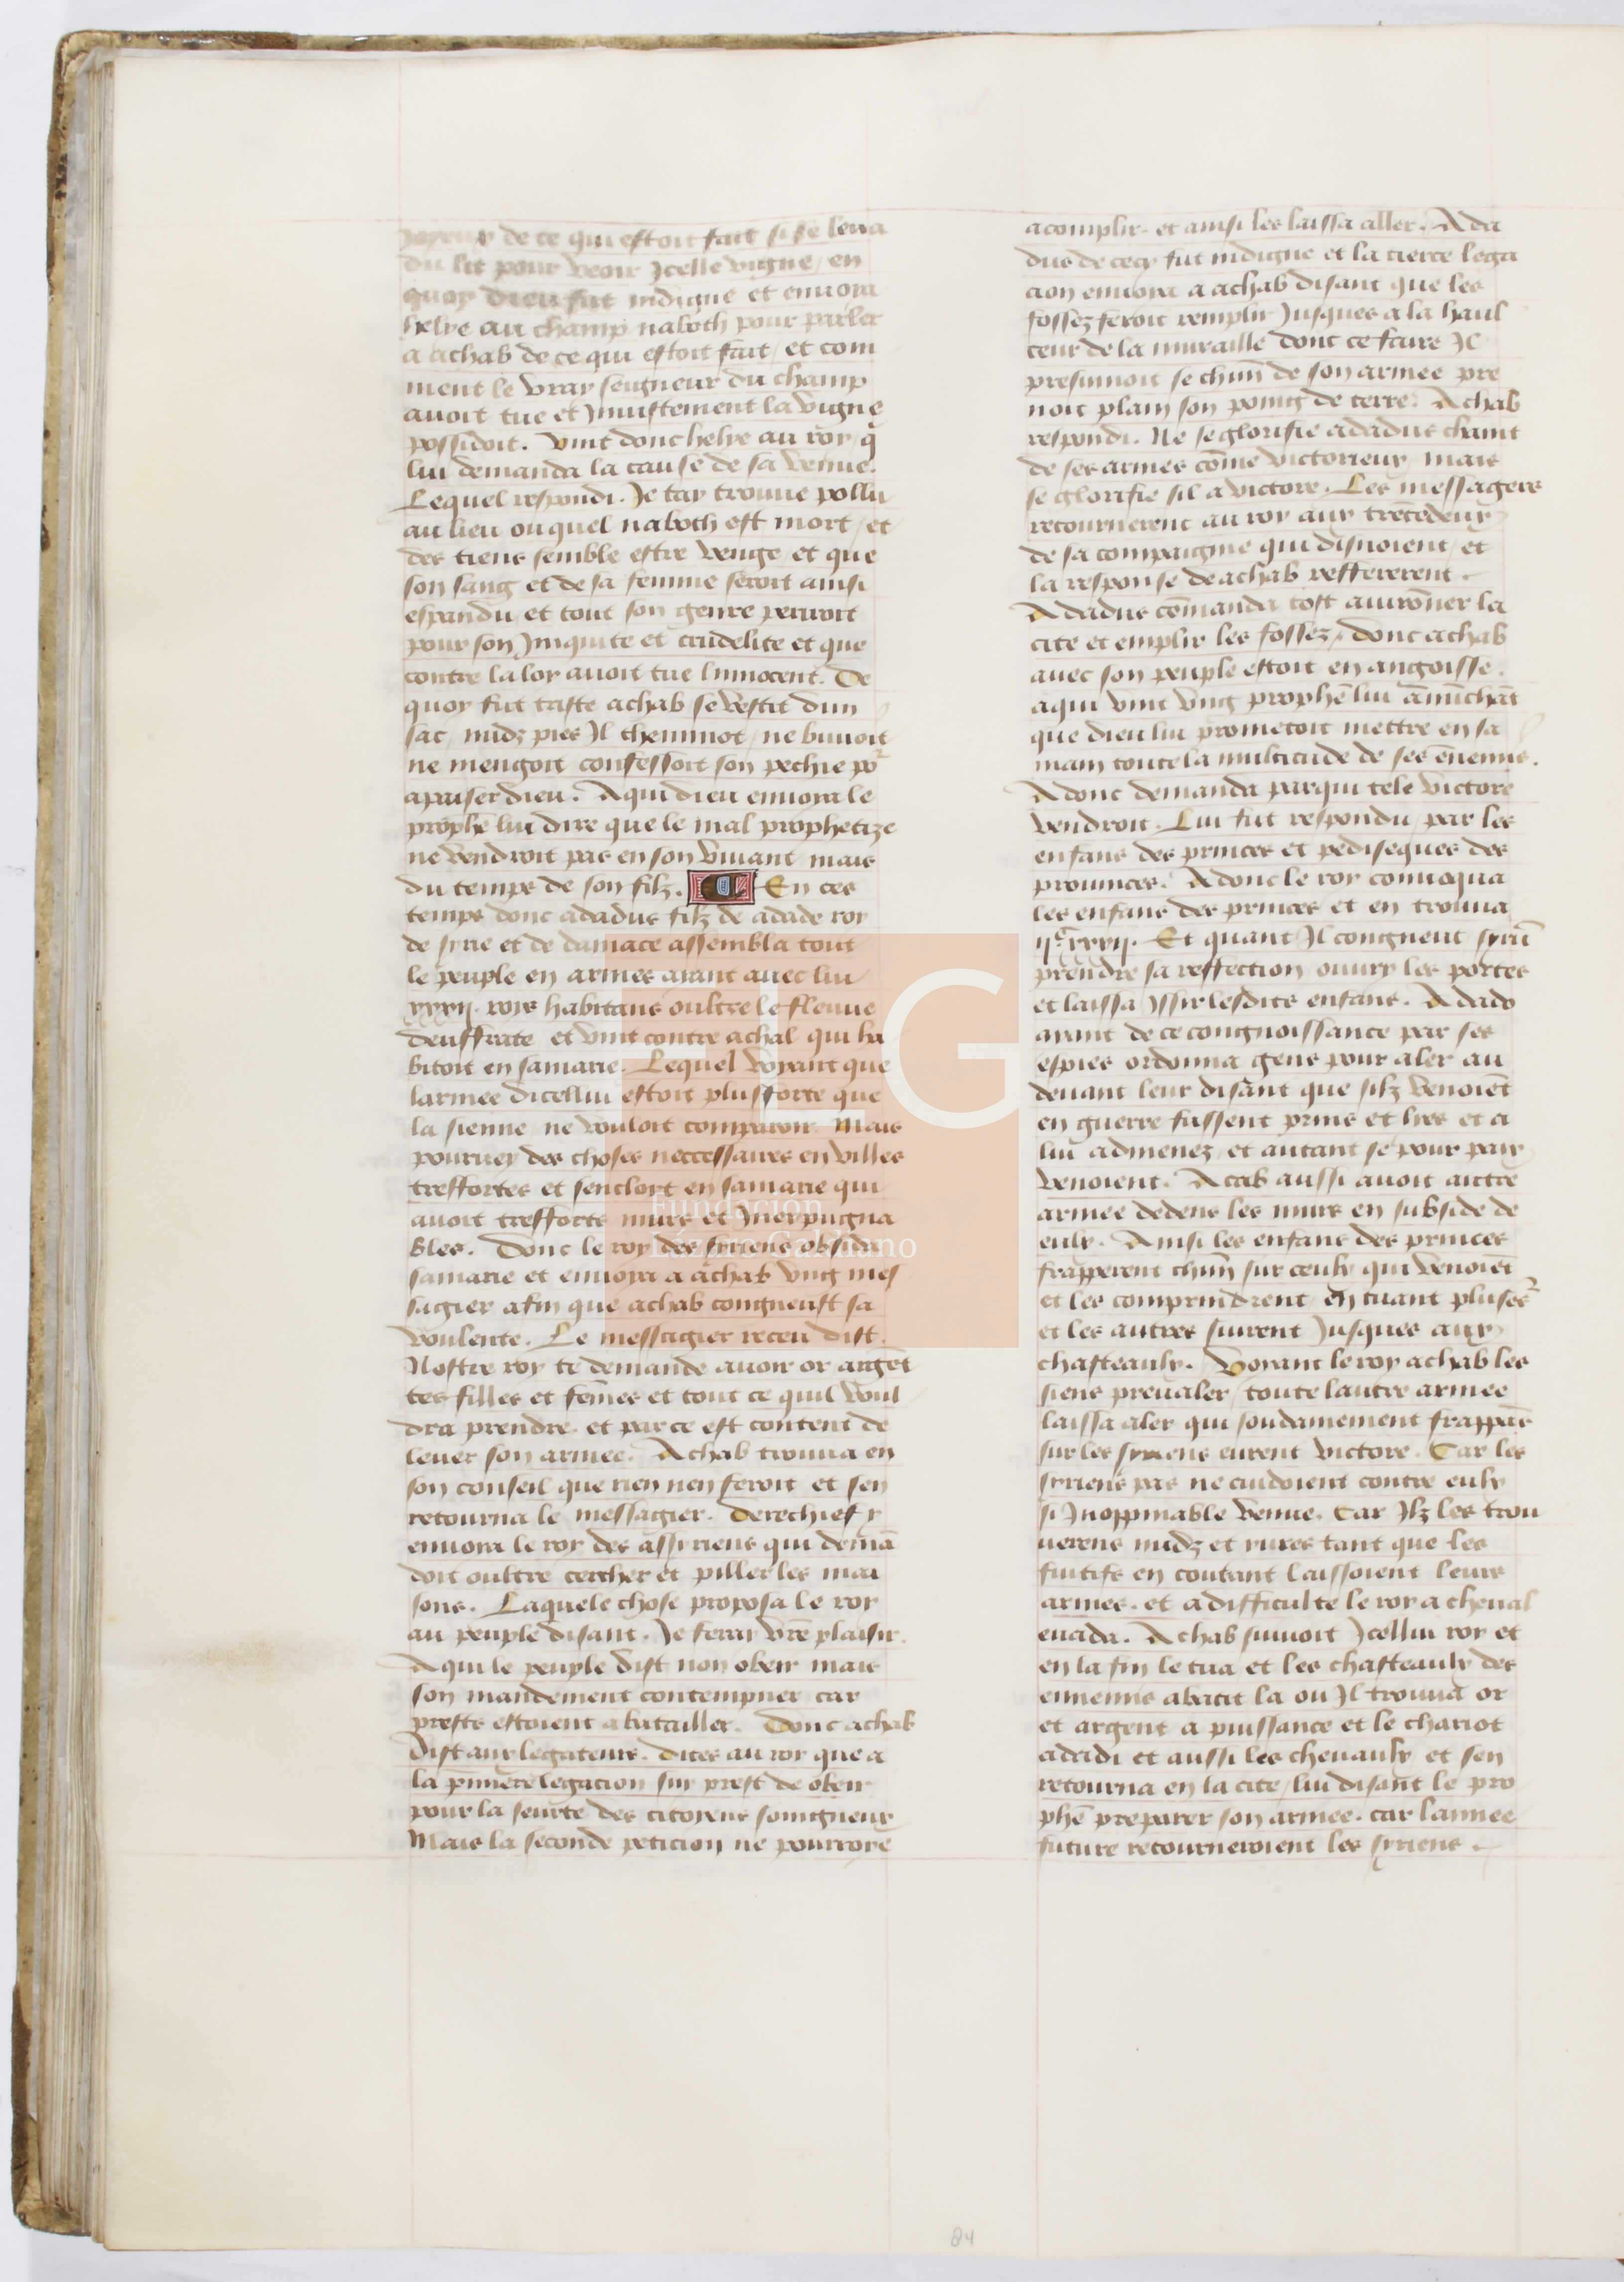 Joyeux de ce qui estoit fait si se leua
du lit pour veoir Jcelle vigne / en
quoy dieu fut indigne et enuoya
helye au champ naboth pour parler
a achab de ce qui estoit fait / et com
ment le vray seigneur du champ
auoit tue et Jniustement la vigne
possidoit. Vint donc helye au roy q̄
lui demanda la cause de sa venue.
Lequel respondi. Je tay trouue pollu
au lieu ouquel naboth est mort / et
des tiens semble estre venge / et que
son sang et de sa femme seroit ainsi
espandu / et tout son genre periroit
pour son Jniquite et crudelite et que
contre la loy auoit tue linnocent. De
quoy fut triste achab se vestit dun
sac / nudz pies Jl cheminot / ne buuoit
ne mengoit confessoit son pechie po᷑
apaiser dieu. A qui dieu enuoya le
prophē lui dire que le mal prophetize
ne vendroit pas en son viuant / mais
du temps de son filz. En ces
temps donc adadus filz de adade roy
de syrie et de damace assembla tout
le peuple en armes aiant auec lui
xxxij. rois habitans oultre le fleuue
deuffrate et vint contre achal qui ha
bitoit en samarie. Lequel voyant que
larmee dicellui estoit plus forte que
la sienne ne vouloit comparoir Mais
pourueu des choses neccessaires en villes
tresfortes et senclort en samarie qui
auoit tresforts murs et Jnexpugna
bles. Donc le roy des syriens obsida
samarie et enuoya a achab vng mes
sagier afin que achab congneust sa
voulente. Le messagier receu dist.
Nostre roy te demande auoir or argēt
tes filles et fēmes et tout ce quil voul
dra prendre. et par ce est content de
leuer son armee. Achab trouua en
son conseil que rien nen feroit et sen
retourna le messagier. Derechief y
enuoya le roy des assyriens qui demā
doit oultre cercher et piller les mai
sons. Laquele chose proposa le roy
au peuple disant. Je feray vrē plaisir.
A qui le peuple dist non obeir mais
son mandement contempner car
prests estoient a batailler. Donc achab
dist aux legateurs. dites au roy que a
la p̄miere legacion suy prest de obeir
pour la seurte des citoyens soingneux
Mais la seconde peticion ne pourroye
acomplir. et ainsi les laissa aller. Ada
dus de cecy fut indigne et la tierce lega
cion enuoya a achab disant que les
fossez feroit remplir Jusques a la haul
teur de la muraille dont ce faire Jl
presumoit se chūn de son armee pre
noit plain son poing de terre. Achab
respondi. Ne se glorifie adadus chaint
de ses armes cōme victorieux mais
se glorifie sil a victore. Les messagers
retournerent au roy aux trētedeux
de sa compaignie qui disnoient / et
la response de achab reffererent.
Adadus cōmanda tost auirōner la
cite et emplir les fossez / donc achab
auec son peuple estoit en angoisse.
a qui vint vng prophē lui ānūchāt
que dieu lui prometoit mettre en sa
main toute la multitude de ses ēnemis.
Adonc demanda par qui tele victore
vendroit. Lui fut respondu / par les
enfans des princes et pediseques des
prouinces. Adonc le roy conuoqua
les enfans des princes et en trouua
ijᶜxxxij. Et quant Jl congneut syrū
prendre sa reffection ouury les portes
et laissa Jssir lesdits enfans. Adado
ayant de ce congnoissance par ses
espies ordonna gens pour aler au
deuant leur disant que silz venoiēt
en guerre fussent prins et lies et a
lui admenez / et autant se pour paix
venoient. Acab aussi auoit autre
armee dedens les murs en subside de
eulx. Ainsi les enfans des princes
frapperent chūn sur ceulx qui venoiēt
et les comprindrent / en tuant pluseᷣs
et les autres suirent Jusques aux
chasteaulx. Voyant le roy achab les
siens preualer / toute lautre armee
laissa aler qui soudainement frappāt
sur les syriens eurent victore. Car les
syriens pas ne cuidoient contre eulx
si Jnoppinable venue. Car Jlz les trou
uerens nudz et yures tant que les
fuitifs en courant laissoient leurs
armes. et a difficulte le roy a cheual
euada. Achab suiuoit Jcellui roy et
en la fin le tua et les chasteaulx des
ennemis abatit la ou Jl trouua or
et argent a puissance et le chariot
adadi et aussi les cheuaulx et sen
retourna en la cite / lui disant le pro
phē preparer son armee. car lannee
future retourneroient les syriens.
FLG
Fundación
Lázaro Galdiano
84